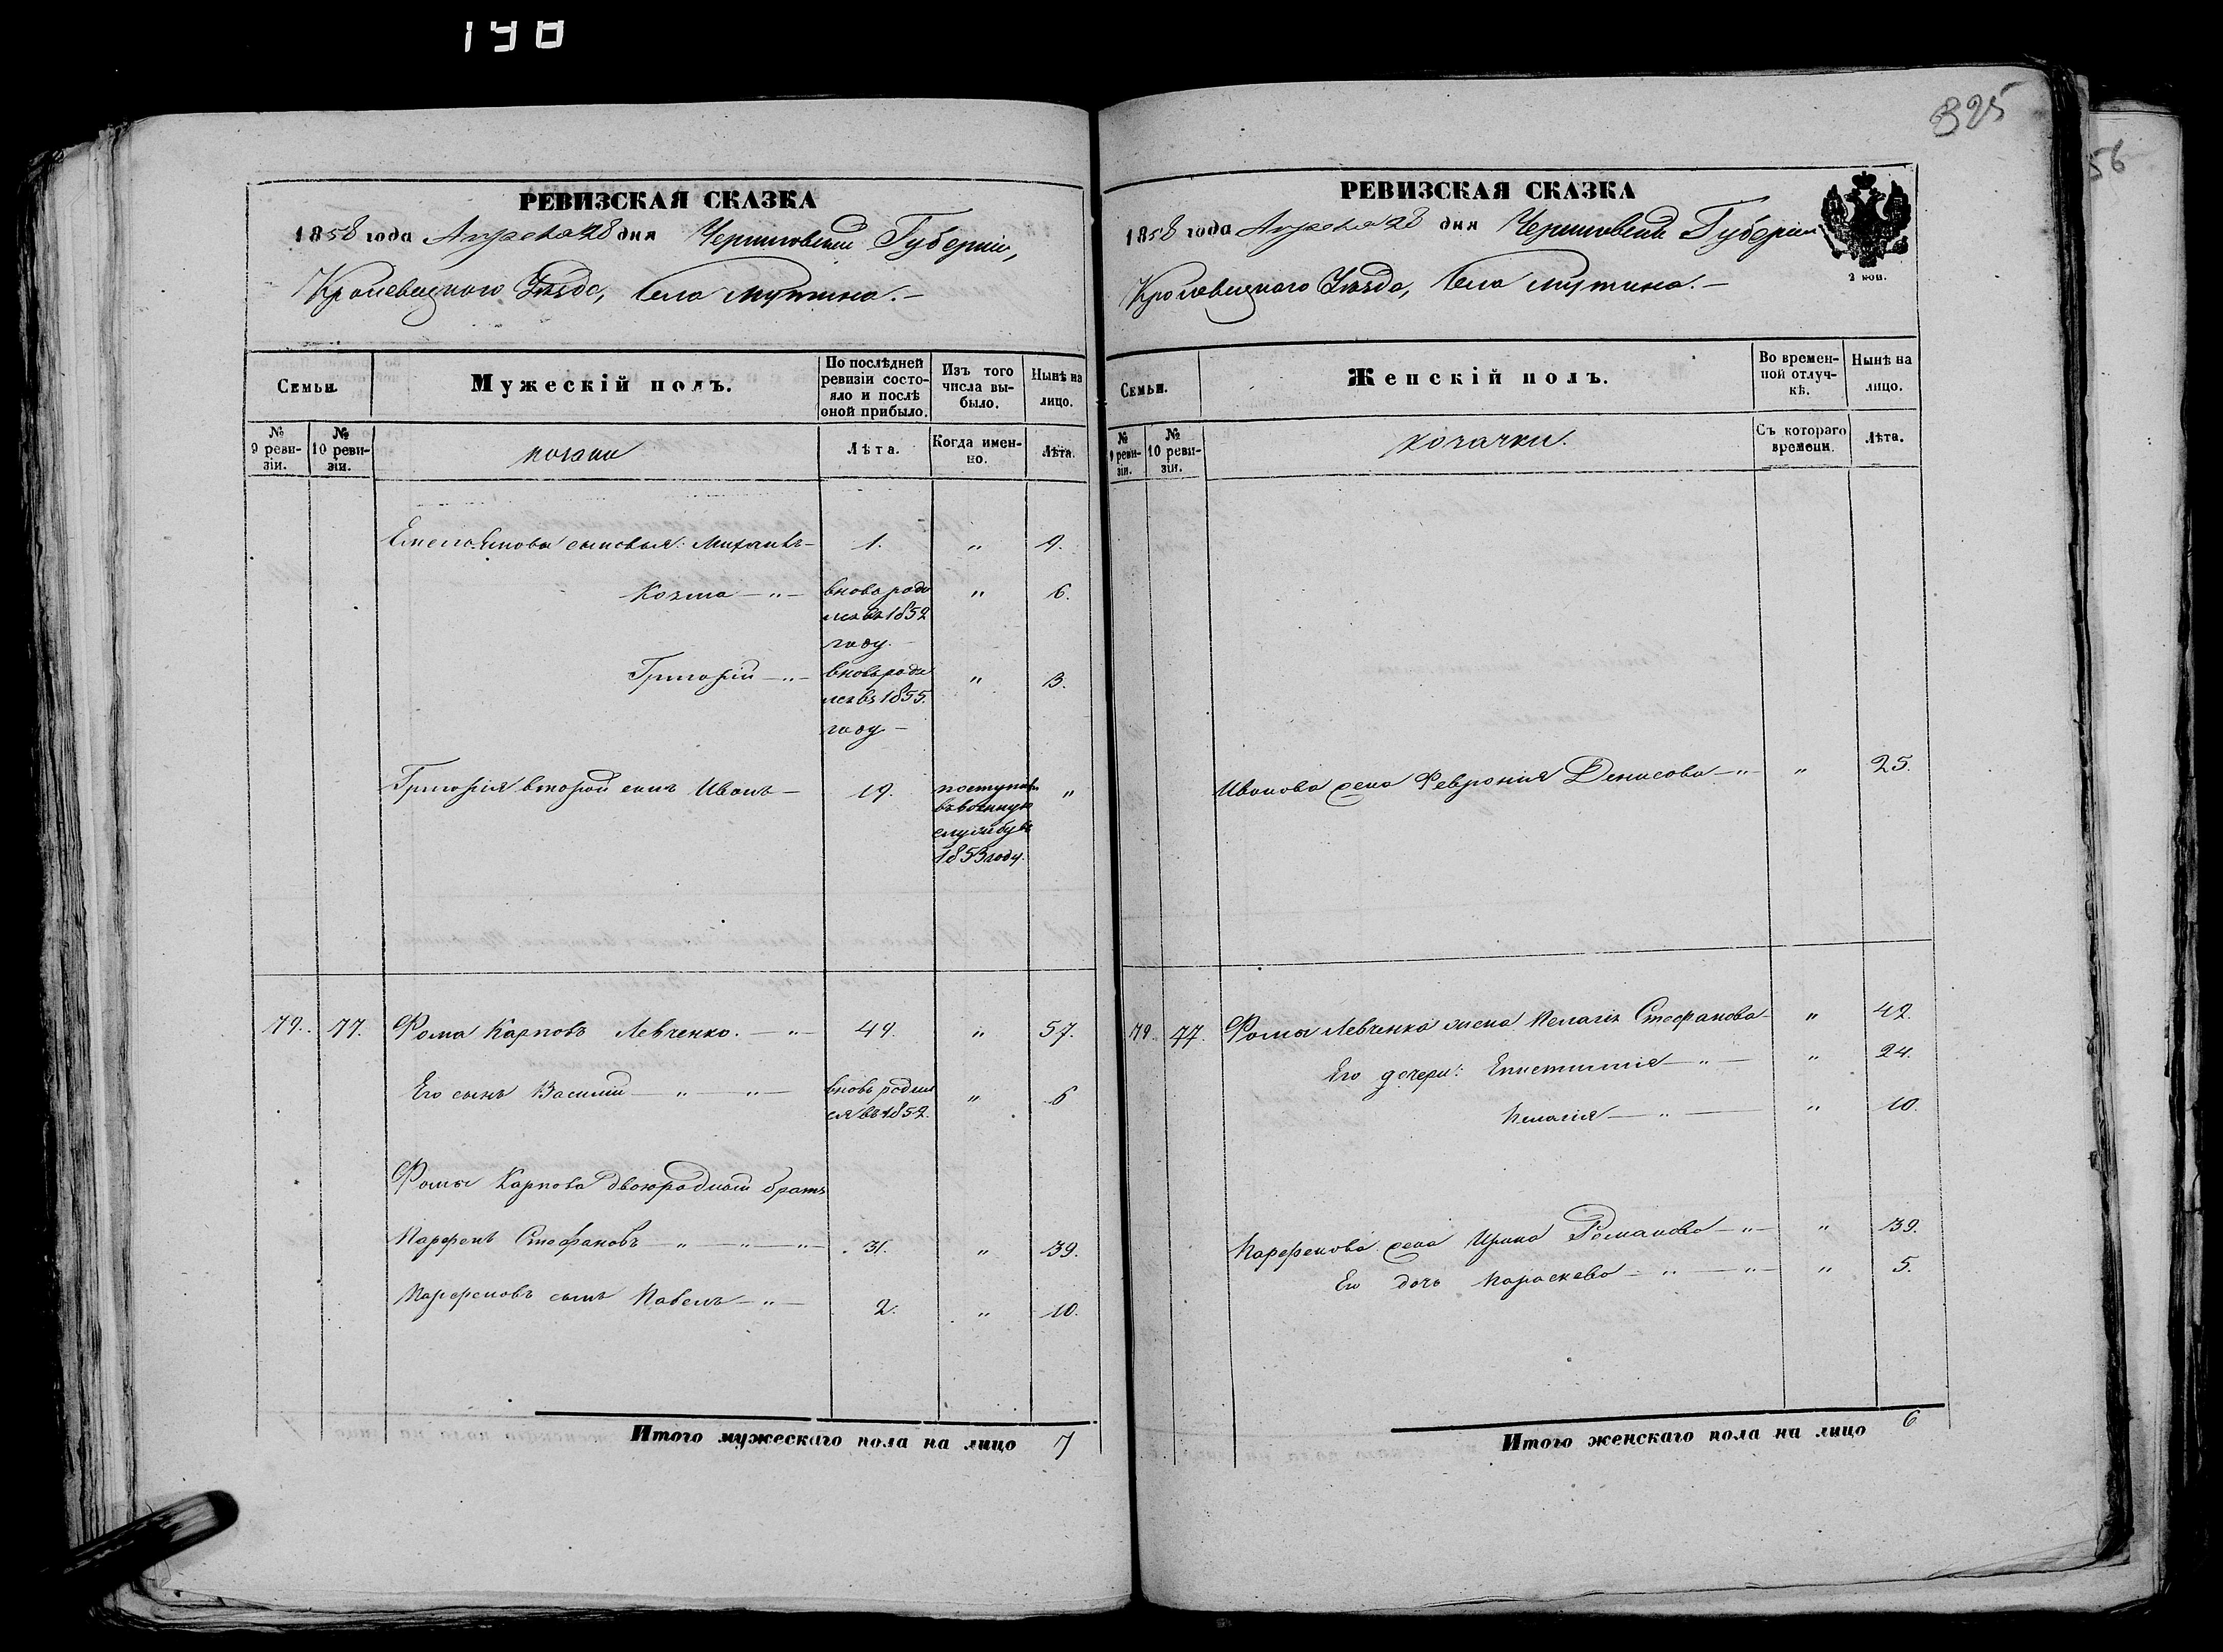 198
325
56
РЕВИЗСКАЯ СКАЗКА
1858 года Апреля 28 дня Черниговской Губерніи,
Кролевецкого Уѣзда, Села Мутина.—
Семьи.
Мужескій полъ.
По послѣдней ревизіи состояло и послѣ оной прибыло.
Изъ того числа выбыло.
Нынѣ на лицо.
№ 9 ревизіи.
№ 10 ревизіи.
козаки
Лѣта.
Когда именно.
Лѣта.
Емельянова сыновья: Михаилъ — 1. " 9.
Козма — " — вновь роди " 6.
лся въ 1852
году.
Григорій — " — вновь роди " 3.
лся въ 1855.
году —
Григорія второй сынъ Иванъ — 19. поступилъ "
въ военную
службу въ
1853 году.
79. 77. Фома Карповъ Левченко. — " — 49. " 57.
Его сынъ Василій — " — " — вновь родил " 6
ся въ 1852.
Фомы Карпова двоюродный братъ
Парфенъ Стефановъ — " — " — 31. " 39.
Парфеновъ сынъ Павелъ — " — 2. " 10.
Итого мужескаго пола на лицо 7
РЕВИЗСКАЯ СКАЗКА
1858 года Апреля 28 дня Черниговской Губерніи
Кролевецкого Уѣзда, Села Мутина.—
2 коп.
Семьи.
Женскій полъ.
Во временной отлучкѣ.
Нынѣ на лицо.
№ 9 ревизіи.
№ 10 ревизіи.
козачки.
Съ котораго времени.
Лѣта.
Иванова жена Февронія Денисова — " — " 25.
79. 77. Фомы Левченка жена Пелагія Стефанова — " 42.
Его дочери: Епистимія — " — " 24.
Пелагія — " — " 10.
Парфенова жена Ирина Романова — " — " 39.
Его дочь Параскева — " — " — " 5.
Итого женскаго пола на лицо 6